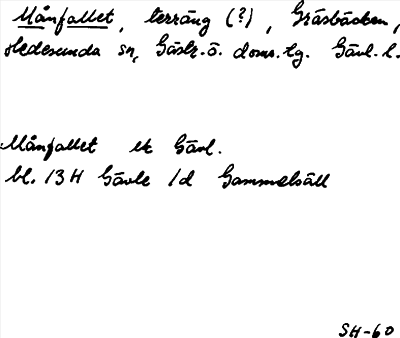 Månfallet, terräng (?), Gräsbäcken,
Hedesunda sn, Gästr.ö. doms.lg. Gävl. l.
Månfallet ek Gävl.
bl. 13 H Gävle 1d Gammelsäll
SH-60